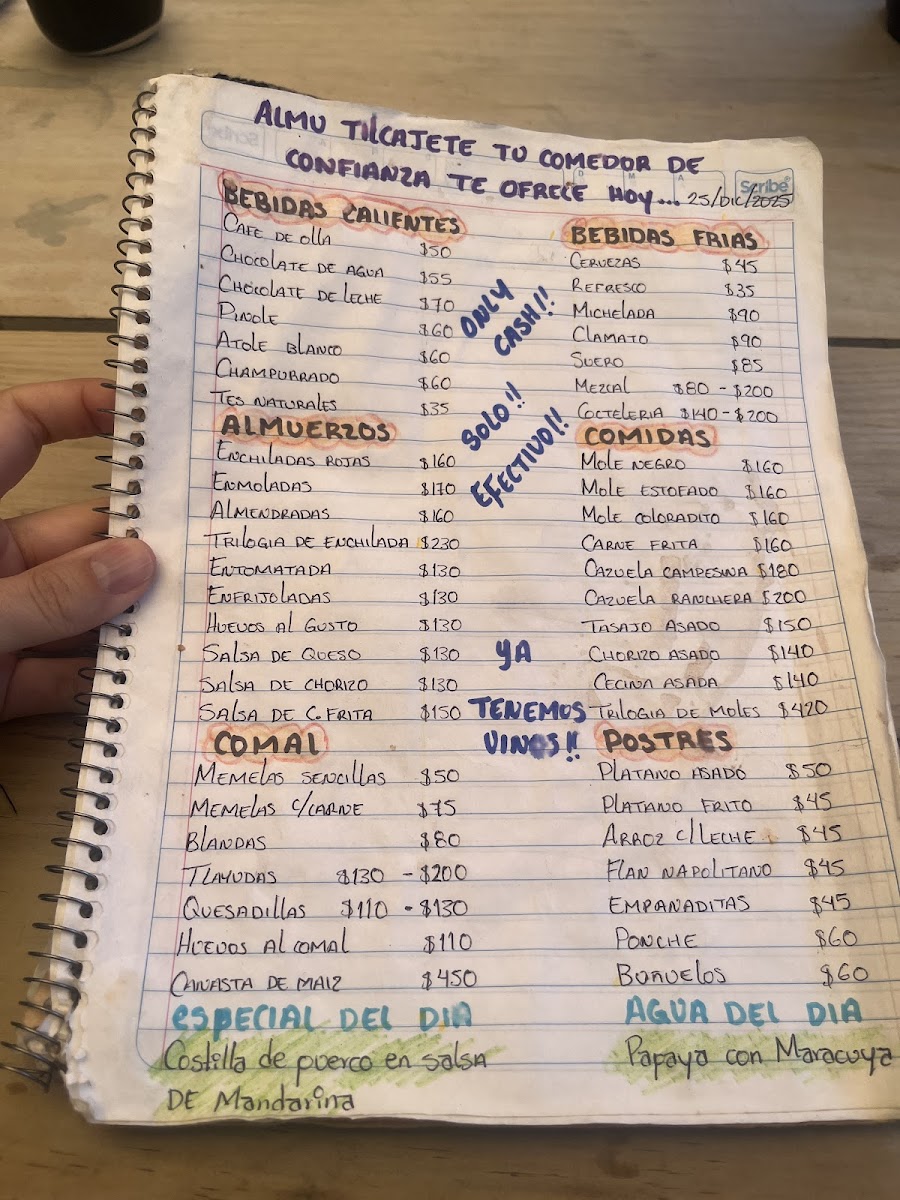 ALMU TILCAJETE TU COMEDOR DE
CONFIANZA TE OFRECE HOY... 25/DIC/2025
Scribe
BEBIDAS CALIENTES
CAFE DE OLLA $50
CHOCOLATE DE AGUA $55
CHOCOLATE DE LECHE $70
PINOLE $60
ATOLE BLANCO $60
CHAMPURRADO $60
TES NATURALES $35
ALMUERZOS
ENCHILADAS ROJAS $160
ENMOLADAS $170
ALMENDRADAS $160
TRILOGIA DE ENCHILADA $230
ENTOMATADA $130
ENFRIJOLADAS $130
HUEVOS AL GUSTO $130
SALSA DE QUESO $130
SALSA DE CHORIZO $130
SALSA DE C. FRITA $150
COMAL
MEMELAS SENCILLAS $50
MEMELAS C/CARNE $75
BLANDAS $80
TLAYUDAS $130 - $200
QUESADILLAS $110 - $130
HUEVOS AL COMAL $110
CANASTA DE MAIZ $450
ESPECIAL DEL DIA
Costilla de puerco en salsa
DE Mandarina
ONLY
CASH!!
SOLO!!
EFECTIVO!!
YA
TENEMOS
VINOS!!
BEBIDAS FRIAS
CERVEZAS $45
REFRESCO $35
MICHELADA $90
CLAMATO $90
SUERO $85
MEZCAL $80 - $200
COCTELERIA $140 - $200
COMIDAS
MOLE NEGRO $160
MOLE ESTOFADO $160
MOLE COLORADITO $160
CARNE FRITA $160
CAZUELA CAMPESINA $180
CAZUELA RANCHERA $200
TASAJO ASADO $150
CHORIZO ASADO $140
CECINA ASADA $140
TRILOGIA DE MOLES $420
POSTRES
PLATANO ASADO $50
PLATANO FRITO $45
ARROZ C/LECHE $45
FLAN NAPOLITANO $45
EMPANADITAS $45
PONCHE $60
BUÑUELOS $60
AGUA DEL DIA
Papaya con Maracuya